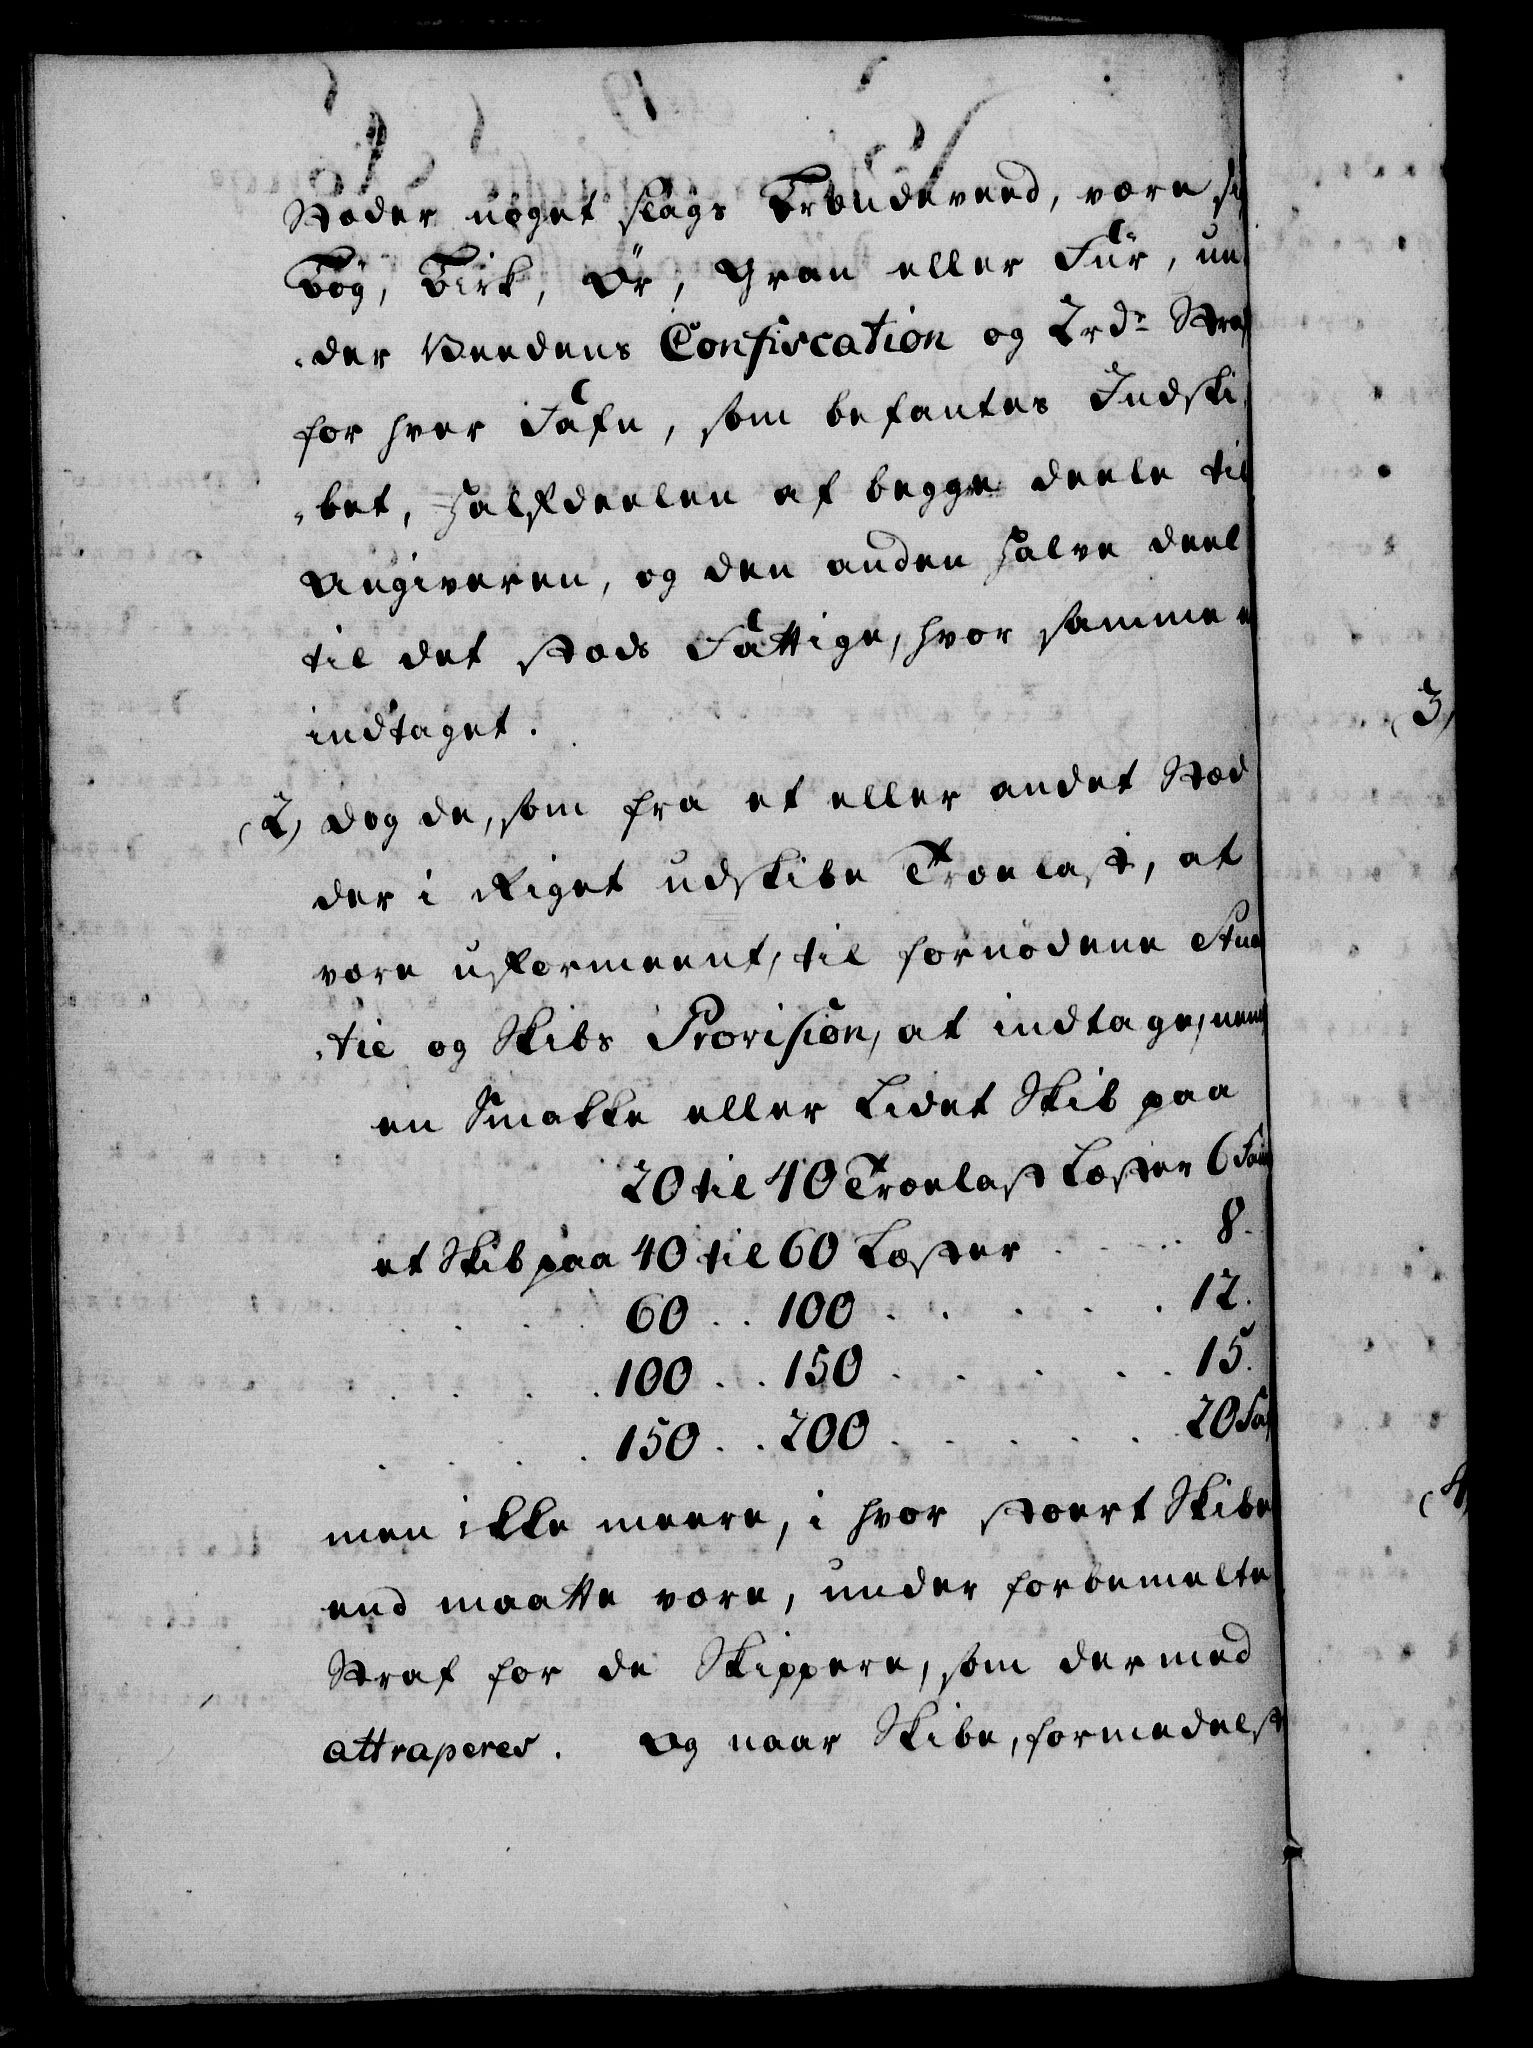 Stæder noget slags Brændeveed, være sig
Bøg, Birk, Ør, Gran eller Für, un¬
der Veedens Confiscation og 2 rdr Straf
for hver Fafn, som befantes Indski¬
bet, Halfdeelen af begge deele til
Angiveren, og den anden halve deel
til det Støds Fattige, hvor samme er
indtaget.
(2) Dog de, som fra et eller andet Stæd
der i Riget udskibe Trælast, at
være uformeent, til fornødene Stua¬
tie og Skibs Provision, at indtage, neml
en Smakke eller Lidet Skib paa
20 til 40 Trælast Læster 6 Faun
et Skib paa 40 til 60 Læster . . . . 8.
. . . . 60 . . 100 . . . . . 12.
. . . . 100 . . 150 . . . . . 15.
. . . . 150 . . 200 . . . . . 20 Faf
men ikke meere, i hvor stoert Skibe
end maatte være, under forbemelte
Straf for de Skippere, som dermed
attraperes. Og naar Skibe, formedelst
(3)
(4)